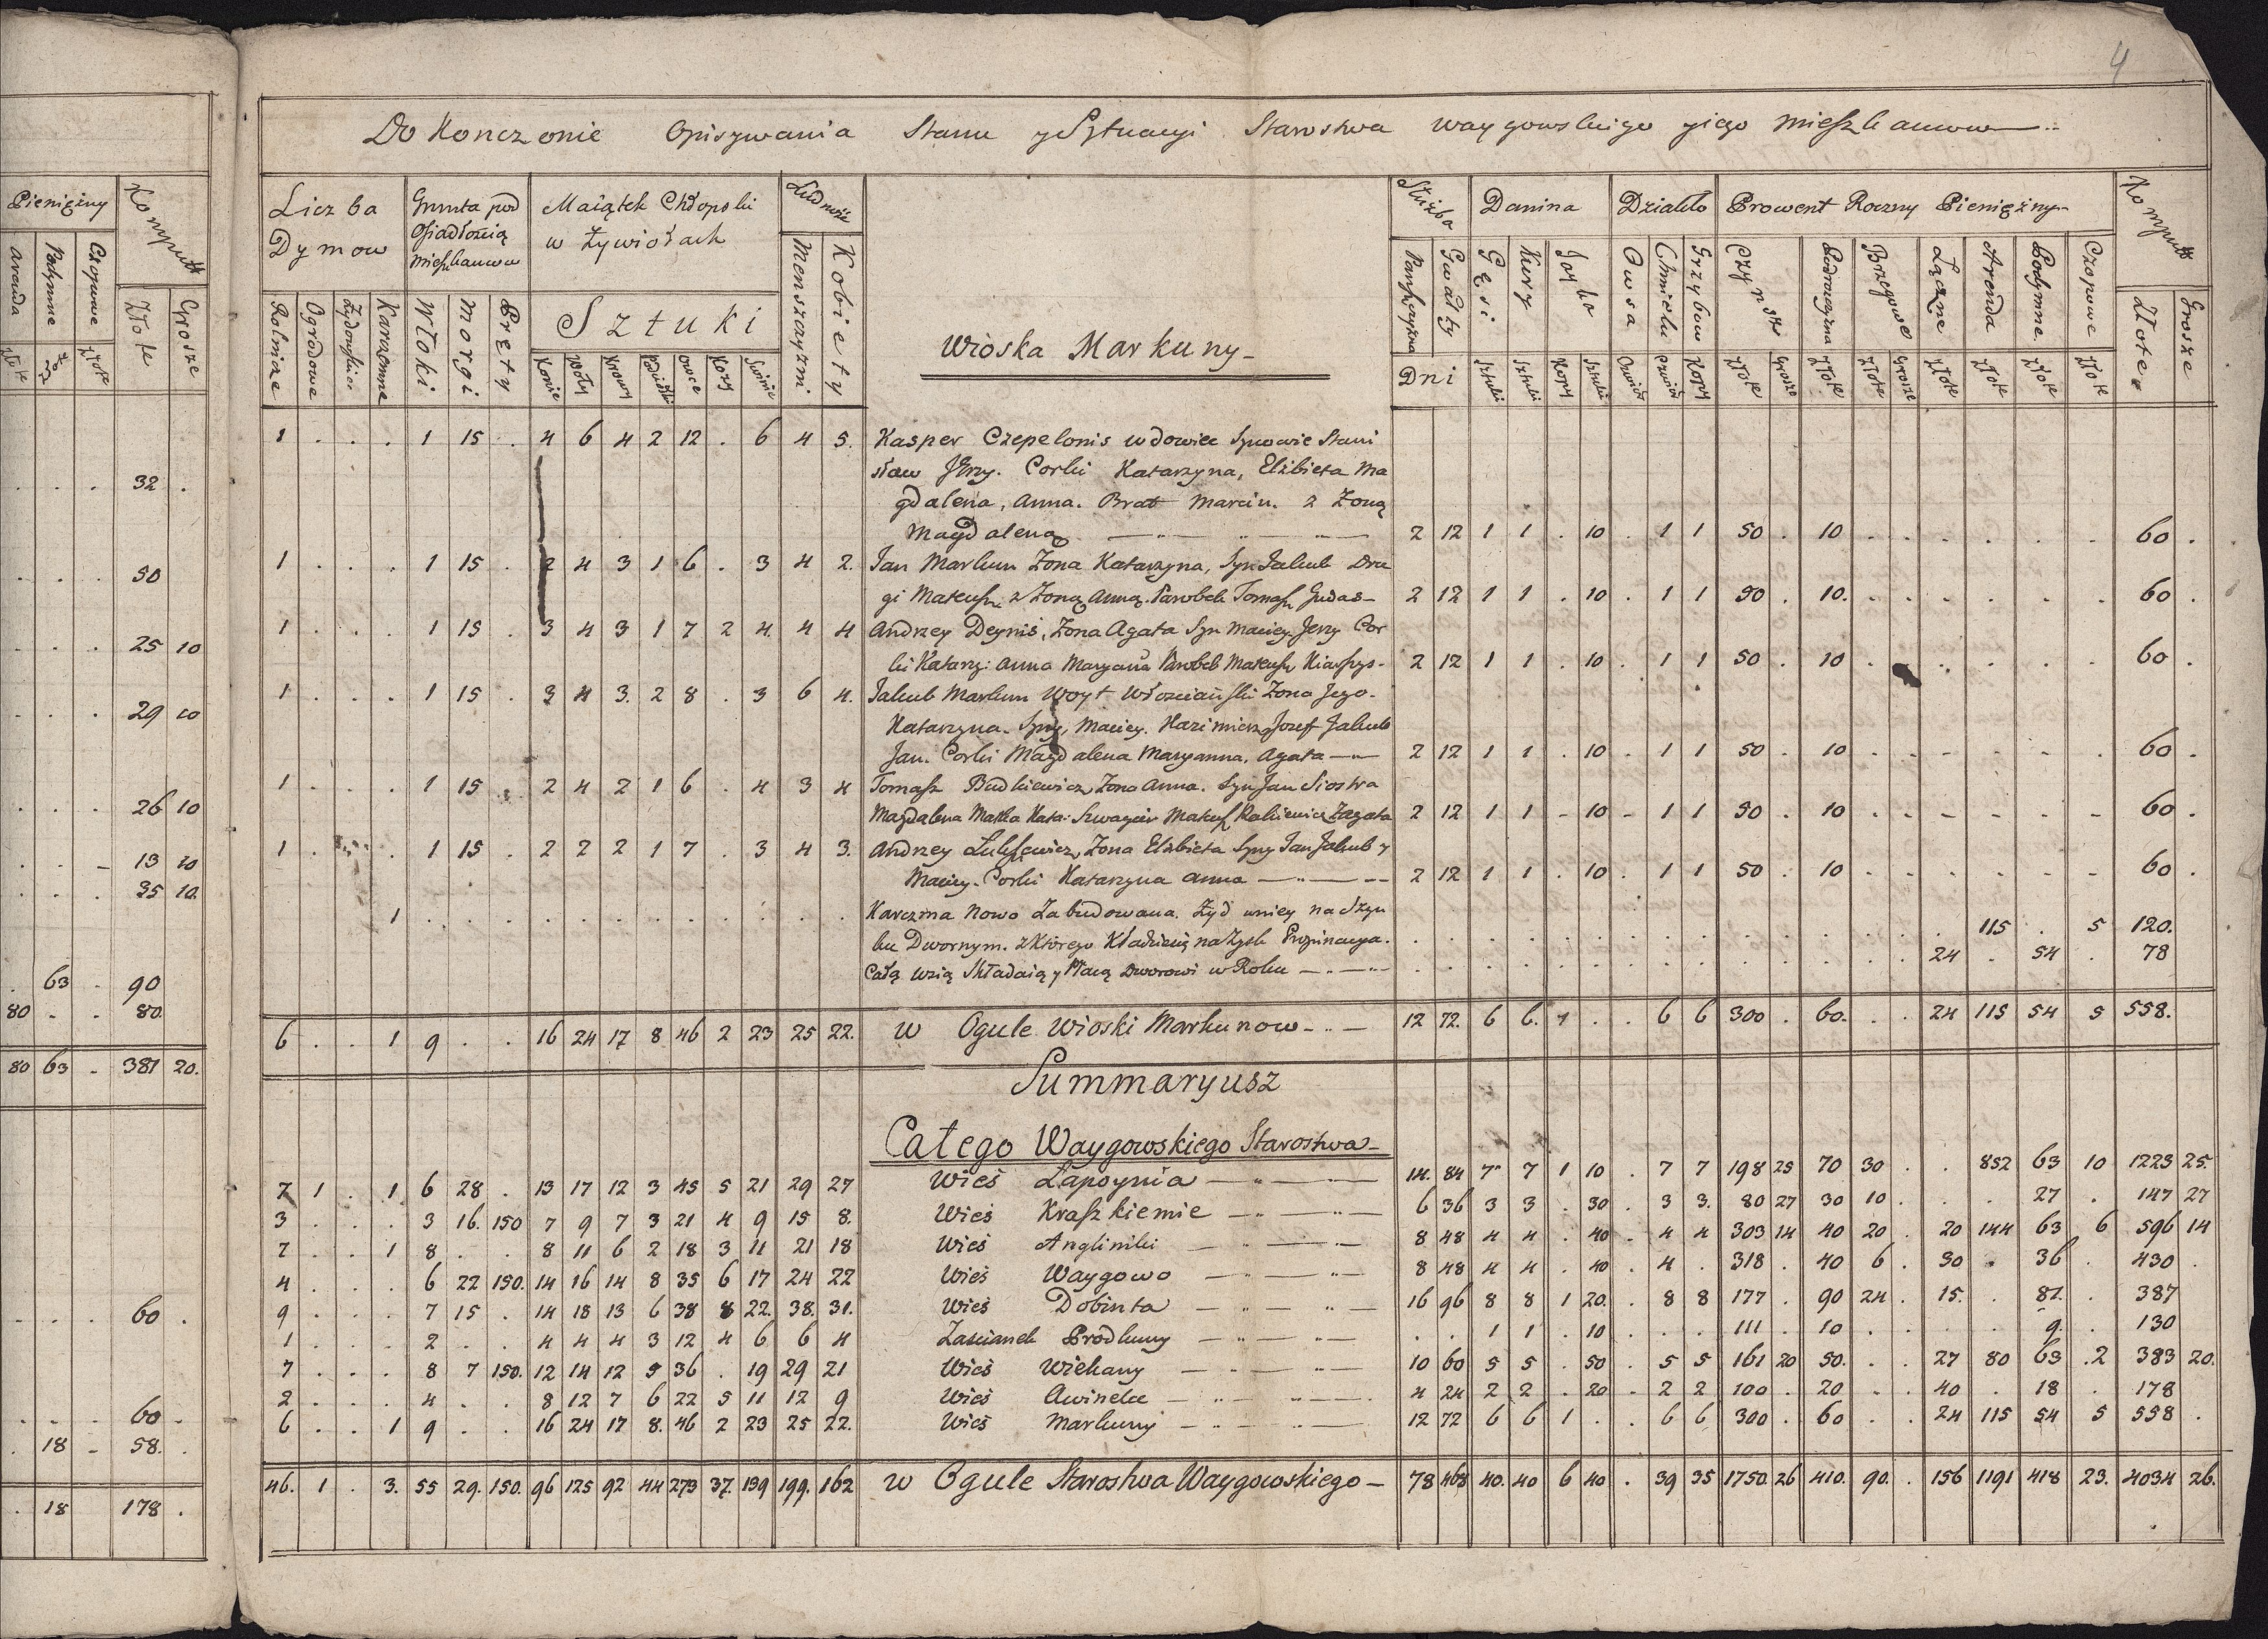 4
Do Konczenie Opisywania Stanu y Sytuacyi Starostwa waygowskiego yiego mieszkancow
Pienięzny
Komput
Aranda
Podymne
Czopowe
Złote
Grosze
Złote
Złote
32 .
50
25 10
29 10
26 10
13 10
35 10.
63 . 90
80 . . 80
80 63 . 381 20.
60 .
60 .
18 . 58.
18 178 .
Liczba Dymow
Grunta pod Osiadłoscią mieszkancow
Maiątek Chłopski w Zywiołach
Ludnośc
Służba
Danina
Dziakło
Prowent Roczny Pienięzny
Komput
Rolnicze
Ogrodowe
Zydowskie
Karczemne
Włoki
Morgi
Pręty
Sztuki
Konie
Woły
Krowy
Owce
Kozy
Swinie
Menszczyzni
Kobiety
Wioska Markuny
Panszczyzna
Gwałty
Gęsi
Kury
Jayka
Owsa
Chmielu
Grzybow
Czynsz
Podrowszczyzna
Brzegowe
Łączne
Arenda
Podymne
Czopowe
Złote
Grosze
Dni
Sztuki
Sztuki
Kopy
Sztuki
Kopy
Złote
Grosze
Złote
Złote
Grosze
Złote
Złote
Złote
Złote
1 . . . 1 15 . 4 6 4 2 12 . 6 4 5. Kasper Czepelonis wdowiec Synowie Stani
sław Jerzy. Corki Katarzyna, Elżbieta Ma
gdalena, Anna. Brat Marcin. z Zoną
Magdaleną 2 12 1 1 . 10 . 1 1 50 . 10 . . . . . . . 60 .
1 . . . 1 15 . 2 4 3 1 6 . 3 4 2. Jan Markun Zona Katarzyna, Syn Jakub Dru
gi Mateusz z Zoną Anną. Parobek Tomasz Gudas 2 12 1 1 . 10 . 1 1 50 . 10. . . . . . . . 60 .
1 . . . 1 15 . 3 4 3 1 7 2 4. 4 4 Andrzey Deynis, Zona Agata Syn Maciey Jerzy Cor
ki Katarz: Anna Maryana Parobek Mateusz 2 12 1 1 . 10 . 1 1 50 . 10 . . . . . . 60 .
1 . . . 1 15 . 3 4 3. 2 8 . 3 6 4. Jakub Markun Woyt Włosciański Zona Jego
Katarzyna. Syny, Maciey. Kazimierz Jozef Jakub
Jan. Corki Magdalena Maryanna, Agata 2 12 1 1 . 10 . 1 1 50 . 10 . . . . . . . 60 .
1 . . . 1 15 . 2 4 2 1 6 . 4 3 4 Tomasz Budkiewicz Zona Anna. Syn Jan Siostra
Magdalena Matka Kata: Szwagier Mateusz 2 12 1 1 - 10 - 1 1 50 . 10 . . . . . . . 60 .
1 . . . 1 15 . 2 2 2 1 7 . 3 4 3. Andrzey Zona Elżbieta Syny Jan Jakub y
Maciey. Corki Katarzyna Anna 2 12 1 1 . 10 . 1 1 50 . 10 . . . . . . . 60 .
1 . . . . . . . . . . . . Karczma Nowo Zabudowana. Zyd w niey na Szyn
ku Dwornym. z Ktorego Kładnie się na Zysk Propinacya. 115 . 5 120.
Całą wsią Składaią y Płacą Dworowi w Roku 24 . 54 . 78
6 . . 1 9 . . 16 24 17 8 46 2 23 25 22. w Ogule Wioski Markunow 12 72. 6 6. 1 . . 6 6 300 . 60. . . 24 115 54 5 558.
Summaryusz
Całego Waygowskiego Starostwa
7 1 . 1 6 28 . 13 17 12 3 45 5 21 29 27 Wieś Łapoynia 14. 84 7 7 1 10 . 7 7 198 25 70 30 . . 852 63 10 1223 25.
3 . . . 3 16. 150 7 9 7 3 21 4 9 15 8. Wieś Kraszkiemie 6 36 3 3 . 30 . 3 3. 80 27 30 10 . . . 27 . 147 27
7 . . 1 8 . . 8 11 6 2 18 3 11 21 18 Wieś Angliniki 8 48 4 4 . 40 . 4 4 303 14 40 20 . 20 144 63 6 596 14
4 . . . 6 22 150. 14 16 14 8 35 6 17 24 22 Wieś Waygowo 8 48 4 4 . 40 . 4 . 318 . 40 6 . 30 . 36 . 430 .
9 . . . 7 15 . 14 18 13 6 38 8 22. 38. 31. Wieś Dobinta 16 96 8 8 1 20. . 8 8 177 . 90 24 . 15. . 81. . 387
1 . . . 2 . . 4 4 4 3 12 4 6 6 4 Zascianek Brodkuny . . 1 1 . 10 . . . 111 . 10 . . . . 9. . 130
7 . . . 8 7 150. 12 14 12 5 36 . 19 29 21 Wieś Wiekany 10 60 5 5 . 50 . 5 5 161 20 50. . . 27 80 63 2 383 20.
2 . . . 4 . . 8 12 7 6 22 5 11 12 9 Wieś Awinele 4 24 2 2 . 20 . 2 2 100 . 20 . . 40 . 18 . 178
6 . . 1 9 . . 16 24 17 8. 46 2 23 25 22. Wieś Markuny 12 72 6 6 1 . . 6 6 300 . 60 . . 24 115 54 5 558 .
46. 1 . 3. 55 29. 150. 96 125 92 44 273 37. 139 199. 162 w Ogule Starostwa Waygowskiego 78 468 40. 40 6 40 . 39 35 1750. 26 410. 90. . 156 1191 418 23. 4034 26.